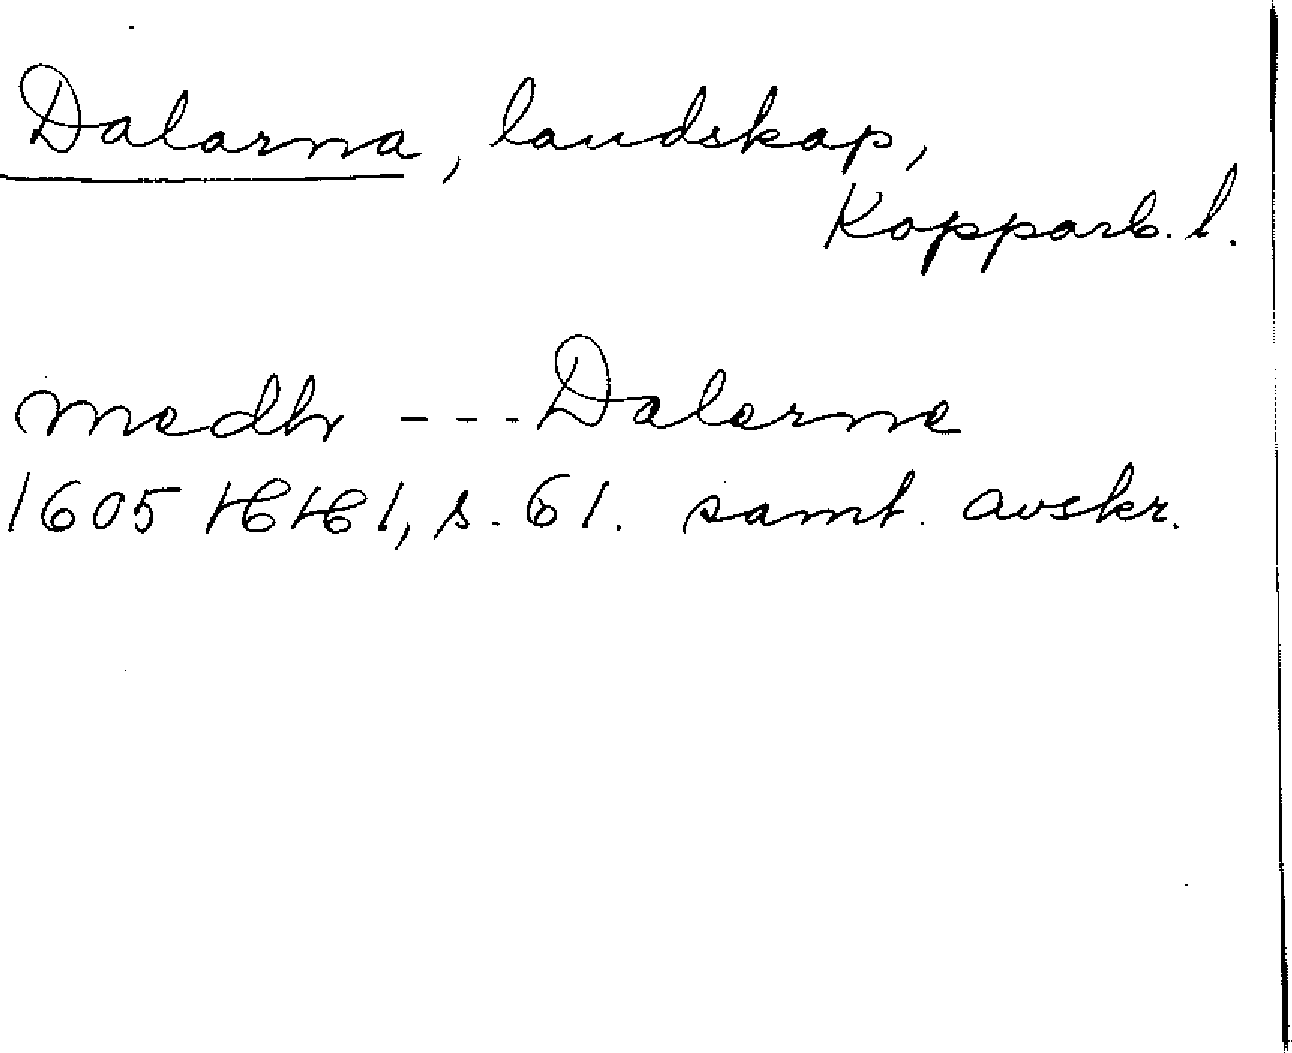 Dalarna, landskap,
Kopparb. l.
medh --- Dalerne
1605 HHl, s. 61. samt. avskr.